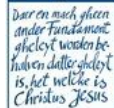 Daer en mach gheen
ander Fundament
gheleyt worden be-
halven datter gheleyt
is, het welcke is
Christus Jesus